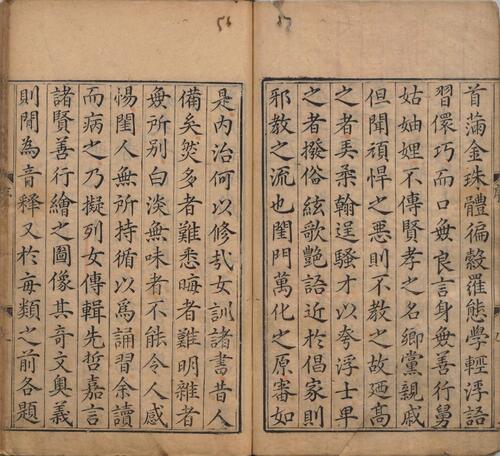 57
首滿金珠體徧縠羅態學輕浮語
習儇巧而口毋良言身毋善行舅
姑妯娌不傳賢孝之名鄉黨親戚
但聞頑悍之惡則不教之故廼高
之者弄柔翰逞騷才以夸浮士卑
之者撥俗絃歌艷語近於倡家則
邪教之流也閨門萬化之原審如
56
是內治何以修哉女訓諸書昔人
備矣然多者難悉晦者難明雜者
毋所別白淡無味者不能令人感
惕閨人無所持循以爲誦習余讀
而病之乃擬列女傳輯先哲嘉言
諸賢善行繪之圖像其奇文奧義
則間為音釋又於每類之前各題